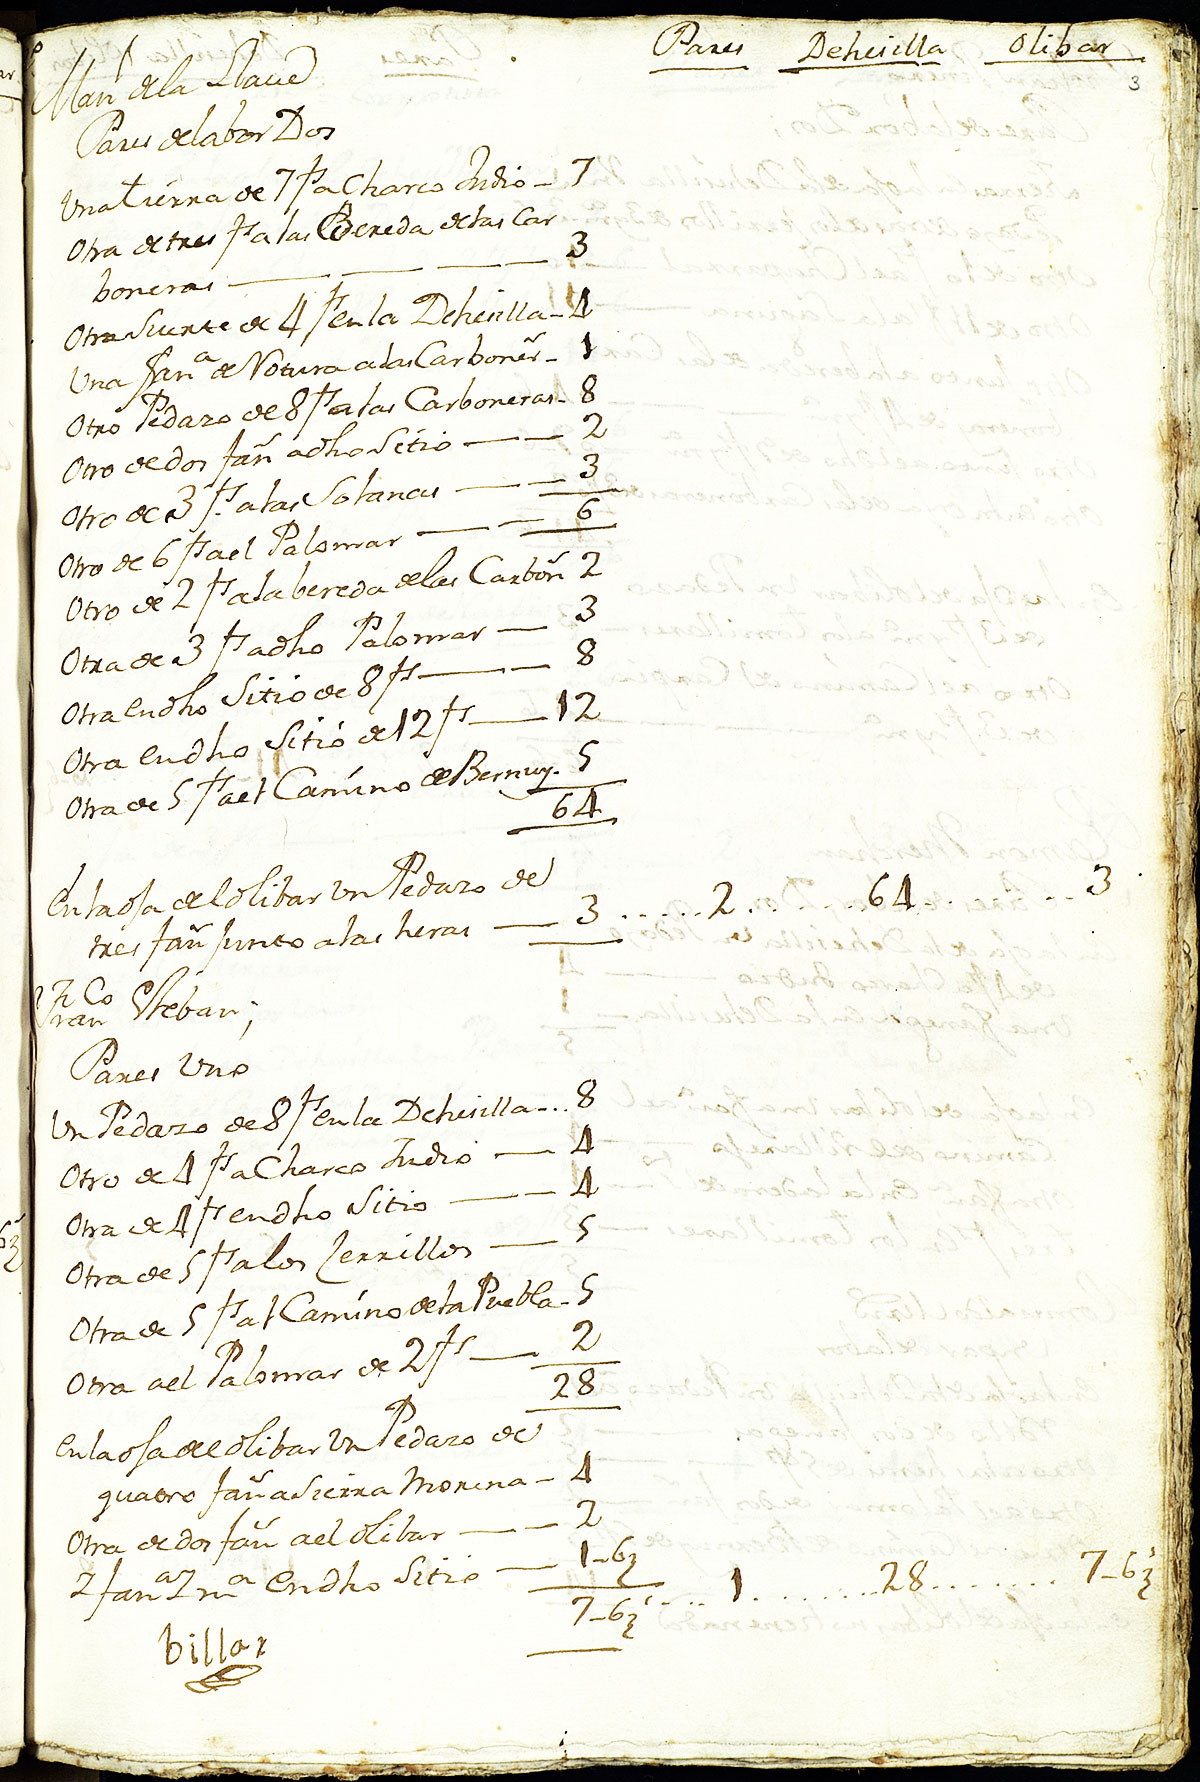 Pares Dehesilla Olibar
3
Man.l de la Llave
Pares de labor Dos
Una tierra de 7 fs a Charco Judio - 7
Otra de tres fs a las Bereda de las Car
boneras 3
Otra Suerte de 4 fs en la Dehesilla - 4
Una fan.a de Rotura a las Carboner.s - 1
Otro Pedazo de 8 fs a las Carboneras - 8
Otro de dos fan.s a dho Sitio 2
Otro de 3 fs a las Solanas 3
Otro de 6 fs a el Palomar 6
Otro de 2 fs a la bereda de las Carbon.s 2
Otra de 3 fs a dho Palomar 3
Otra en dho Sitio de 8 fs 8
Otra en dho Sitio de 12 fs 12
Otra de 5 fs a el Camino de Bernuy - 5
64
En la oja del olibar un Pedazo de
tres fan.s junto a las heras 3 ..... 2 ..... 64 ..... 3
Fran.co Esteban;
Pares uno
Un Pedazo de 8 fs en la Dehesilla ... 8
Otro de 4 fs a Charco Judio 4
Otra de 4 fs en dho Sitio 4
Otra de 5 fs a los Zerrillos 5
Otra de 5 fs a el Camino de la Puebla - 5
Otra a el Palomar de 2 fs 2
28
En la oja de olibar un Pedazo de
quatro fan.s a Sierra Morena - 4
Otra de dos fan.s a el olibar 2
fan.a en dho Sitio 1-6½
7-6½ .... 1 ........ 28 ........ 7-6½
billar